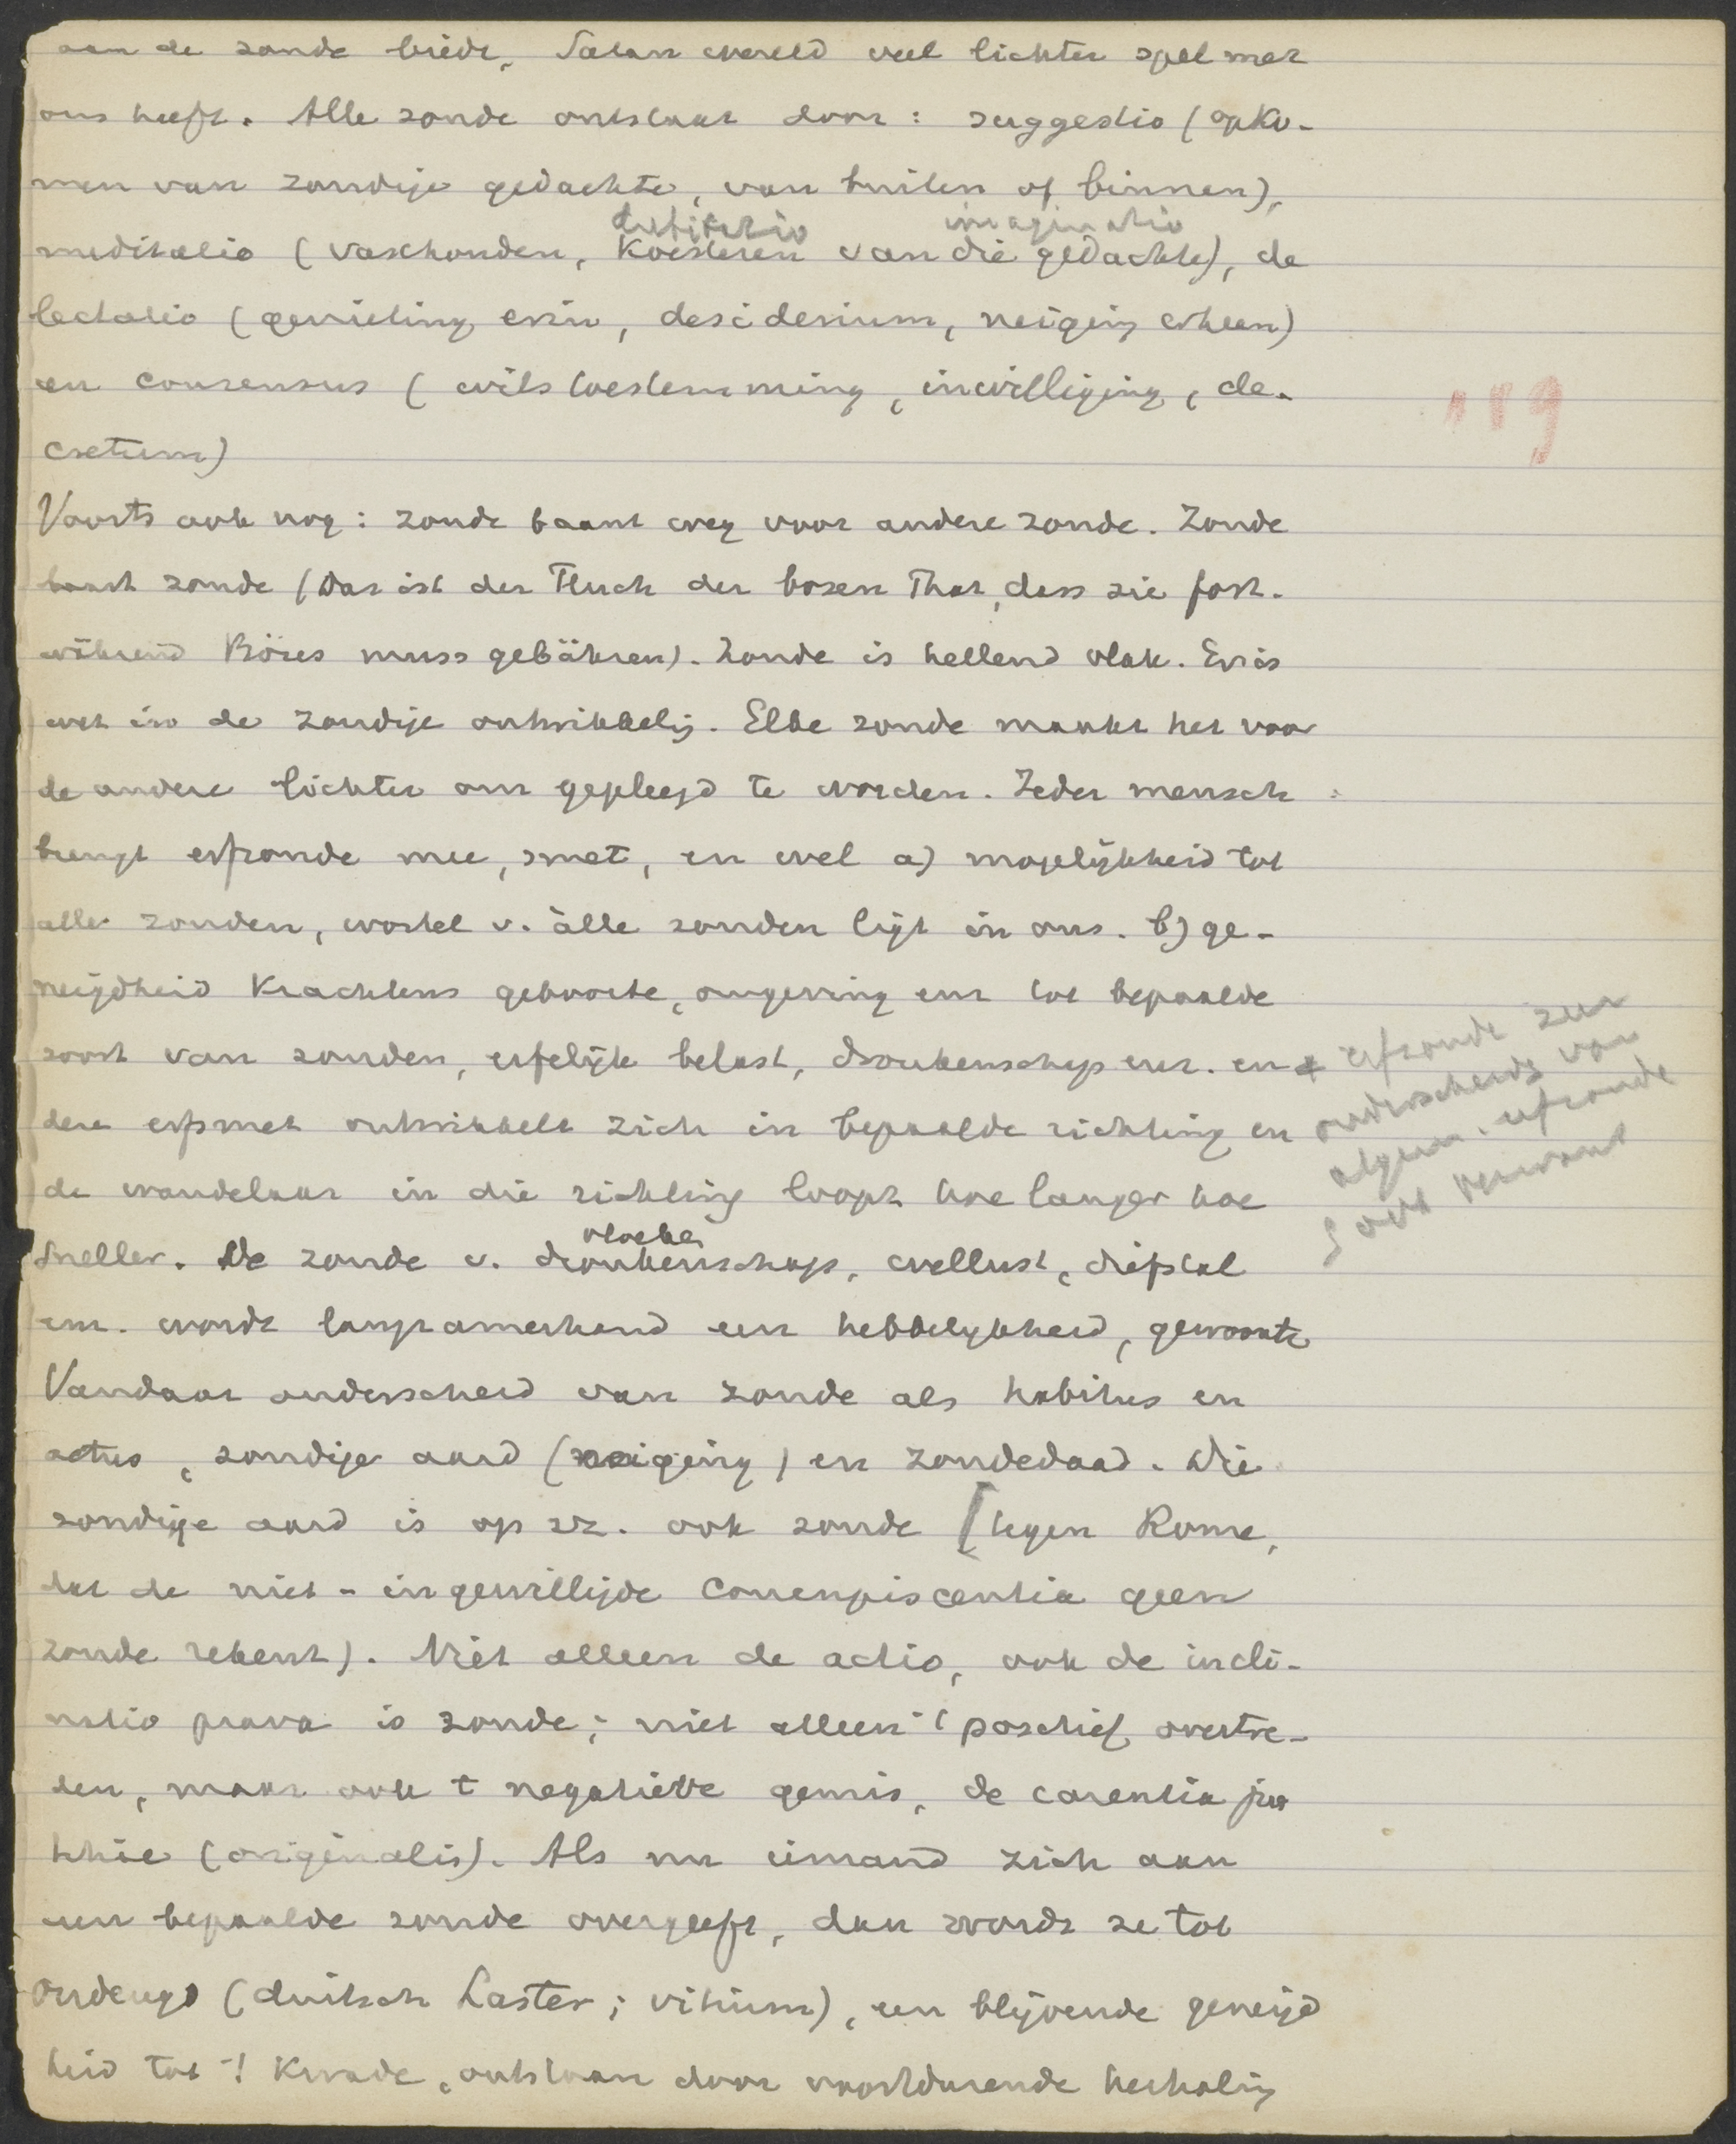 aan de zonde biedt, Satan wereld veel lichter spel met
ons heeft. Alle zonde ontstaat door: suggestio (opko-
men van zondige gedachte, van buiten of binnen),
dubitatio imaginatio
meditatio (vasthouden, koesteren van die gedachte), de
lectatio (genieting erin, desiderium, neiging erheen)
en consensus (wilstoestemming, inwilliging, de-
cretum)
119
Voorts ook nog: zonde baant weg voor andere zonde. Zonde
baart zonde (Das ist der Fluch der bosen That, dass sie fort-
während Böses muss gebähren). Zonde is hellend vlak. Er is
wet in de zondige ontwikkelig. Elke zonde maakt het voor
de andere lichter om gepleegd te worden. Ieder mensch
brengt erfzonde mee, smet, en wel a) mogelijkheid tot
alle zonden, wortel v. àlle zonden ligt in ons. b) ge-
neigdheid krachtens geboorte, omgeving enz tot bepaalde
soort van zonden, erfelijk belast, dronkenschap enz. en
erfzonde zeer
onderscheidg van
algem. erfzonde
soort
dere erfsmet ontwikkelt zich in bepaalde richting en
de wandelaar in die richting loopt hoe langer hoe
vloeken
sneller. De zonde v. dronkenschap, wellust, diefstal
enz. wordt langzamerhand een hebbelijkheid, gewoonte
Vandaar onderscheid van zonde als habitus en
actus, zondige aard (neiging) en zondedaad. Die
zondige aard is op zz. ook zonde [tegen Rome,
dat de niet-ingewilligde concupiscentia geen
zonde rekent). Niet alleen de actio, ook de incli-
natio prava is zonde; niet alleen 't positief overtre-
den, maar ook t negatieve gemis, de carentia jus
titiae (originalis). Als nu iemand zich aan
een bepaalde zonde overgeeft, dan wordt ze tot
ondeugd (duitsch Laster; vitium), een blijvende geneigd
heid tot 't kwade, ontstaan door voortdurende herhalig